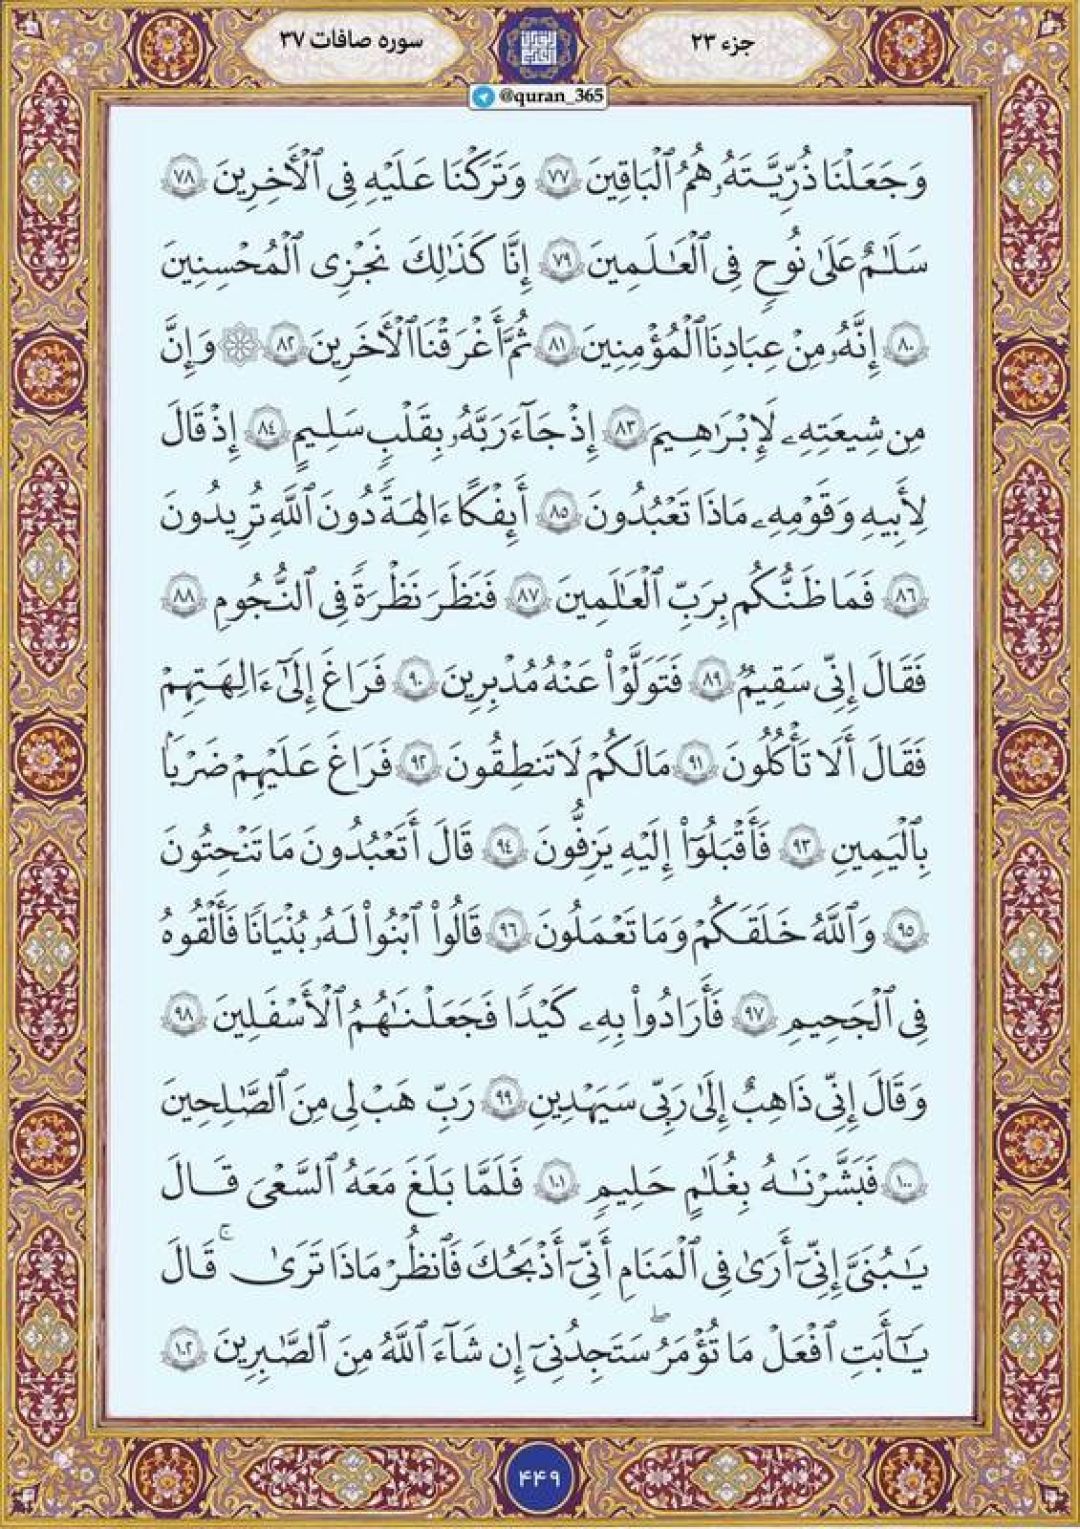 جزء ۲۳
سوره صافات ۳۷
@quran_365
وَجَعَلْنَا ذُرِّيَّتَهُۥ هُمُ ٱلْبَاقِينَ ۷۷ وَتَرَكْنَا عَلَيْهِ فِى ٱلْأَخِرِينَ ۷۸
سَلَٰمٌ عَلَىٰ نُوحٍ فِى ٱلْعَٰلَمِينَ ۷۹ إِنَّا كَذَٰلِكَ نَجْزِى ٱلْمُحْسِنِينَ
۸۰ إِنَّهُۥ مِنْ عِبَادِنَا ٱلْمُؤْمِنِينَ ۸۱ ثُمَّ أَغْرَقْنَا ٱلْأَخَرِينَ ۸۲ ۞ وَإِنَّ
مِن شِيعَتِهِۦ لَإِبْرَٰهِيمَ ۸۳ إِذْ جَآءَ رَبَّهُۥ بِقَلْبٍ سَلِيمٍ ۸۴ إِذْ قَالَ
لِأَبِيهِ وَقَوْمِهِۦ مَاذَا تَعْبُدُونَ ۸۵ أَئِفْكًا ءَالِهَةً دُونَ ٱللَّهِ تُرِيدُونَ
۸۶ فَمَا ظَنُّكُم بِرَبِّ ٱلْعَٰلَمِينَ ۸۷ فَنَظَرَ نَظْرَةً فِى ٱلنُّجُومِ ۸۸
فَقَالَ إِنِّى سَقِيمٌ ۸۹ فَتَوَلَّوْا۟ عَنْهُ مُدْبِرِينَ ۹۰ فَرَاغَ إِلَىٰٓ ءَالِهَتِهِمْ
فَقَالَ أَلَا تَأْكُلُونَ ۹۱ مَا لَكُمْ لَا تَنطِقُونَ ۹۲ فَرَاغَ عَلَيْهِمْ ضَرْبًۢا
بِٱلْيَمِينِ ۹۳ فَأَقْبَلُوٓا۟ إِلَيْهِ يَزِفُّونَ ۹۴ قَالَ أَتَعْبُدُونَ مَا تَنْحِتُونَ
۹۵ وَٱللَّهُ خَلَقَكُمْ وَمَا تَعْمَلُونَ ۹۶ قَالُوا۟ ٱبْنُوا۟ لَهُۥ بُنْيَٰنًا فَأَلْقُوهُ
فِى ٱلْجَحِيمِ ۹۷ فَأَرَادُوا۟ بِهِۦ كَيْدًا فَجَعَلْنَٰهُمُ ٱلْأَسْفَلِينَ ۹۸
وَقَالَ إِنِّى ذَاهِبٌ إِلَىٰ رَبِّى سَيَهْدِينِ ۹۹ رَبِّ هَبْ لِى مِنَ ٱلصَّٰلِحِينَ
۱۰۰ فَبَشَّرْنَٰهُ بِغُلَٰمٍ حَلِيمٍ ۱۰۱ فَلَمَّا بَلَغَ مَعَهُ ٱلسَّعْىَ قَالَ
يَٰبُنَىَّ إِنِّىٓ أَرَىٰ فِى ٱلْمَنَامِ أَنِّىٓ أَذْبَحُكَ فَٱنظُرْ مَاذَا تَرَىٰ ۚ قَالَ
يَٰٓأَبَتِ ٱفْعَلْ مَا تُؤْمَرُ ۖ سَتَجِدُنِىٓ إِن شَآءَ ٱللَّهُ مِنَ ٱلصَّٰبِرِينَ ۱۰۲
۴۴۹